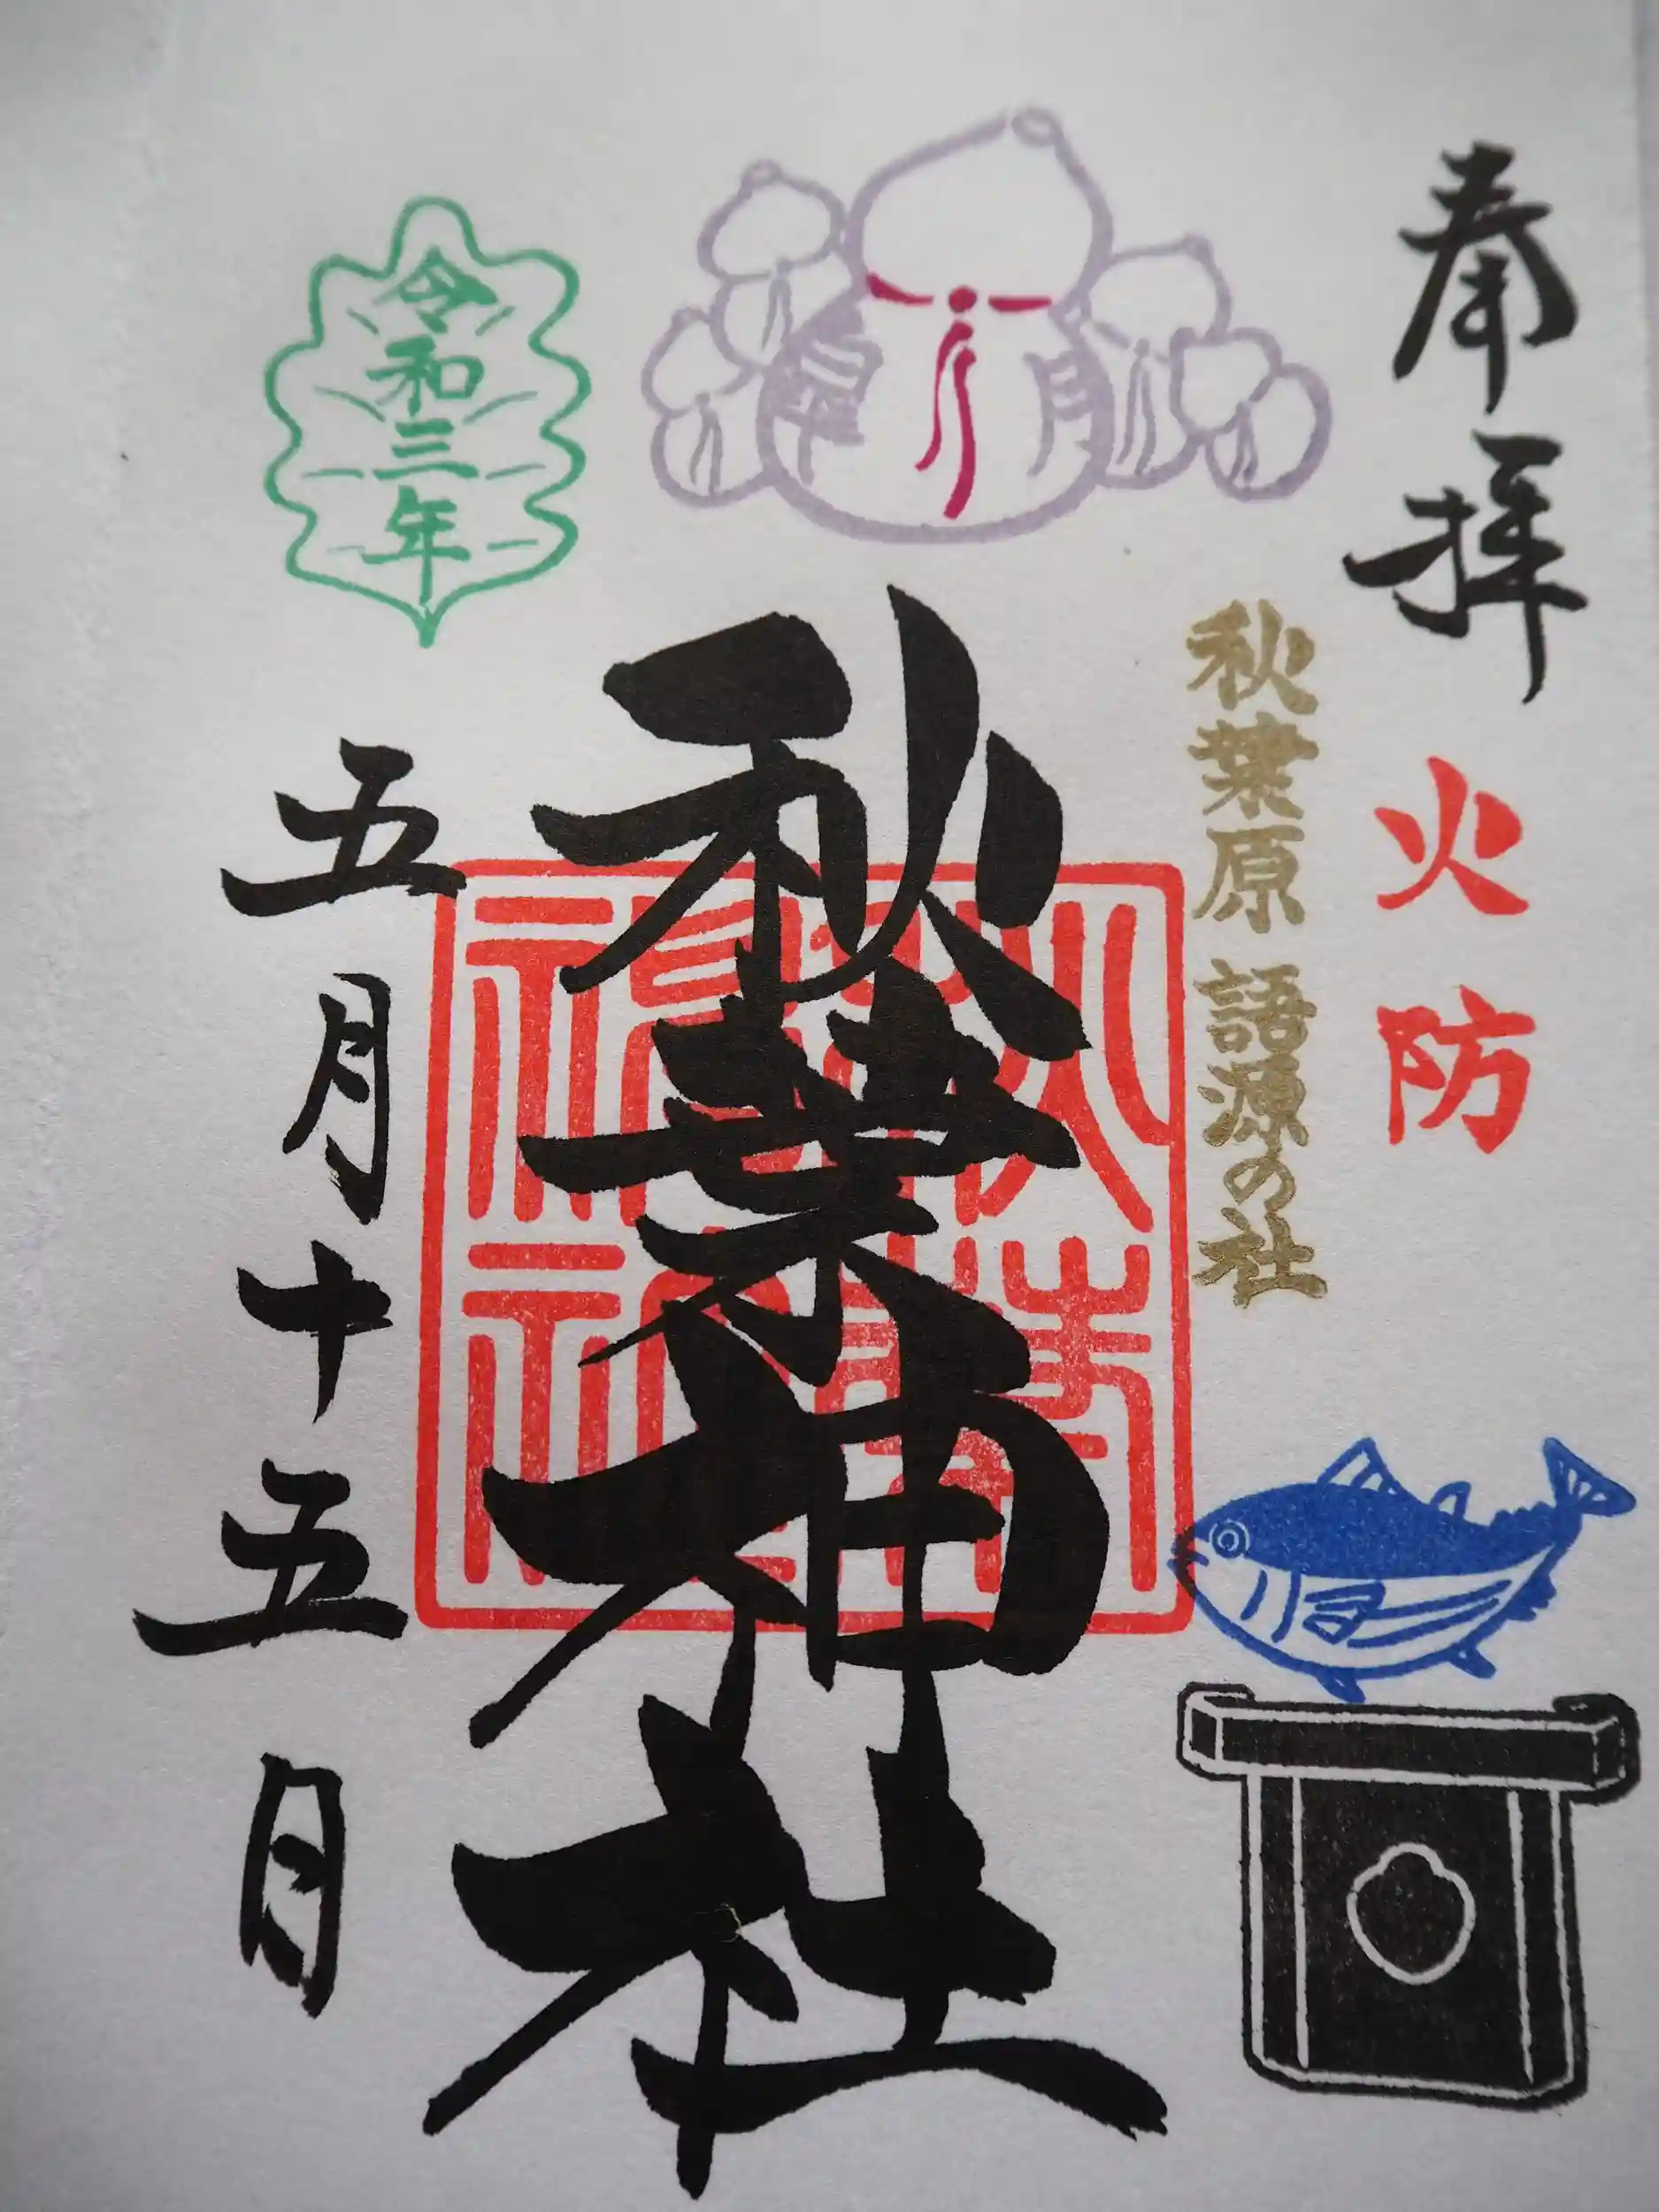 奉拝
火防
秋葉原 語源の社
皐月
秋葉神社
秋葉神社
令和三年
五月十五日